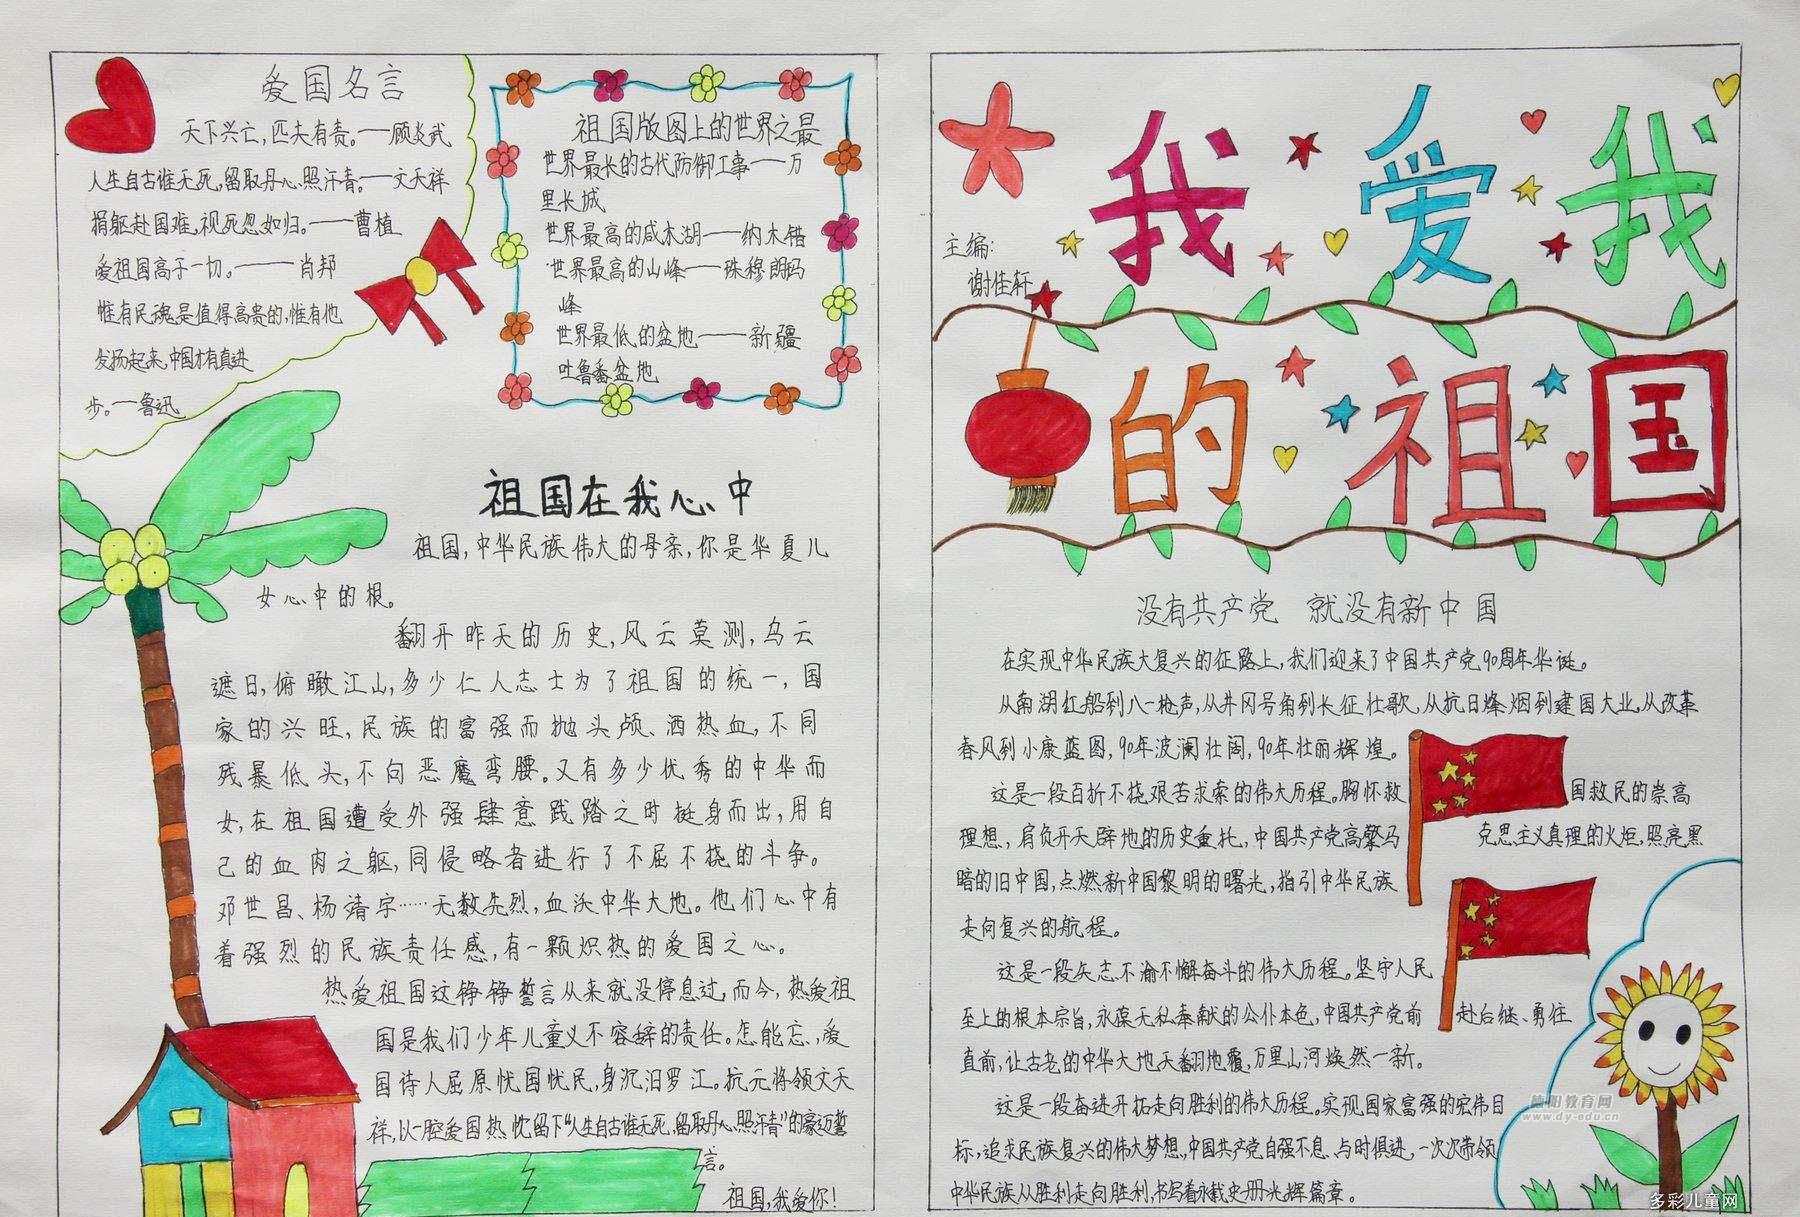 爱国名言
天下兴亡,匹夫有责。——顾炎武
人生自古谁无死,留取丹心照汗青。——文天祥
捐躯赴国难,视死忽如归。——曹植
爱祖国高于一切。——肖邦
惟有民魂是值得高贵的,惟有他
发扬起来,中国才有真进
步。—鲁迅
祖国版图上的世界之最
世界最长的古代防御工事——万
里长城
世界最高的咸水湖——纳木错
世界最高的山峰——珠穆朗玛
峰
世界最低的盆地——新疆
吐鲁番盆地
祖国在我心中
祖国,中华民族伟大的母亲,你是华夏儿
女心中的根。
翻开昨天的历史,风云莫测,乌云
遮日,俯瞰江山,多少仁人志士为了祖国的统一,国
家的兴旺,民族的富强而抛头颅、洒热血,不同
残暴低头,不向恶魔弯腰。又有多少优秀的中华而
女,在祖国遭受外强肆意践踏之时挺身而出,用自
己的血肉之躯,同侵略者进行了不屈不挠的斗争。
邓世昌、杨靖宇……无数先烈,血沃中华大地。他们心中有
着强烈的民族责任感,有一颗炽热的爱国之心。
热爱祖国这铮铮誓言从来就没停息过,而今,热爱祖
国是我们少年儿童义不容辞的责任。怎能忘,爱
国诗人屈原忧国忧民,身沉汨罗江。抗元将领文天
祥,以一腔爱国热忱留下“人生自古谁无死,留取丹心照汗青”的豪迈誓
言。
祖国,我爱你!
我爱我
主编:
谢佳轩
的祖国
没有共产党 就没有新中国
在实现中华民族大复兴的征路上,我们迎来了中国共产党90周年华诞。
从南湖红船到八一枪声,从井冈号角到长征壮歌,从抗日烽烟到建国大业,从改革
春风到小康蓝图,90年波澜壮阔,90年壮丽辉煌。
这是一段百折不挠艰苦求索的伟大历程。胸怀救国救民的崇高
理想,肩负开天辟地的历史重托,中国共产党高擎马克思主义真理的火炬,照亮黑
暗的旧中国,点燃新中国黎明的曙光,指引中华民族
走向复兴的航程。
这是一段矢志不渝不懈奋斗的伟大历程。坚守人民
至上的根本宗旨,永葆无私奉献的公仆本色,中国共产党前赴后继、勇往
直前,让古老的中华大地天翻地覆,万里山河焕然一新。
这是一段奋进开拓走向胜利的伟大历程。实现国家富强的宏伟目
标,追求民族复兴的伟大梦想,中国共产党自强不息、与时俱进,一次次带领
中华民族从胜利走向胜利,书写着永载史册光辉篇章。
德阳教育网
www.dy-edu.cn
多彩儿童网